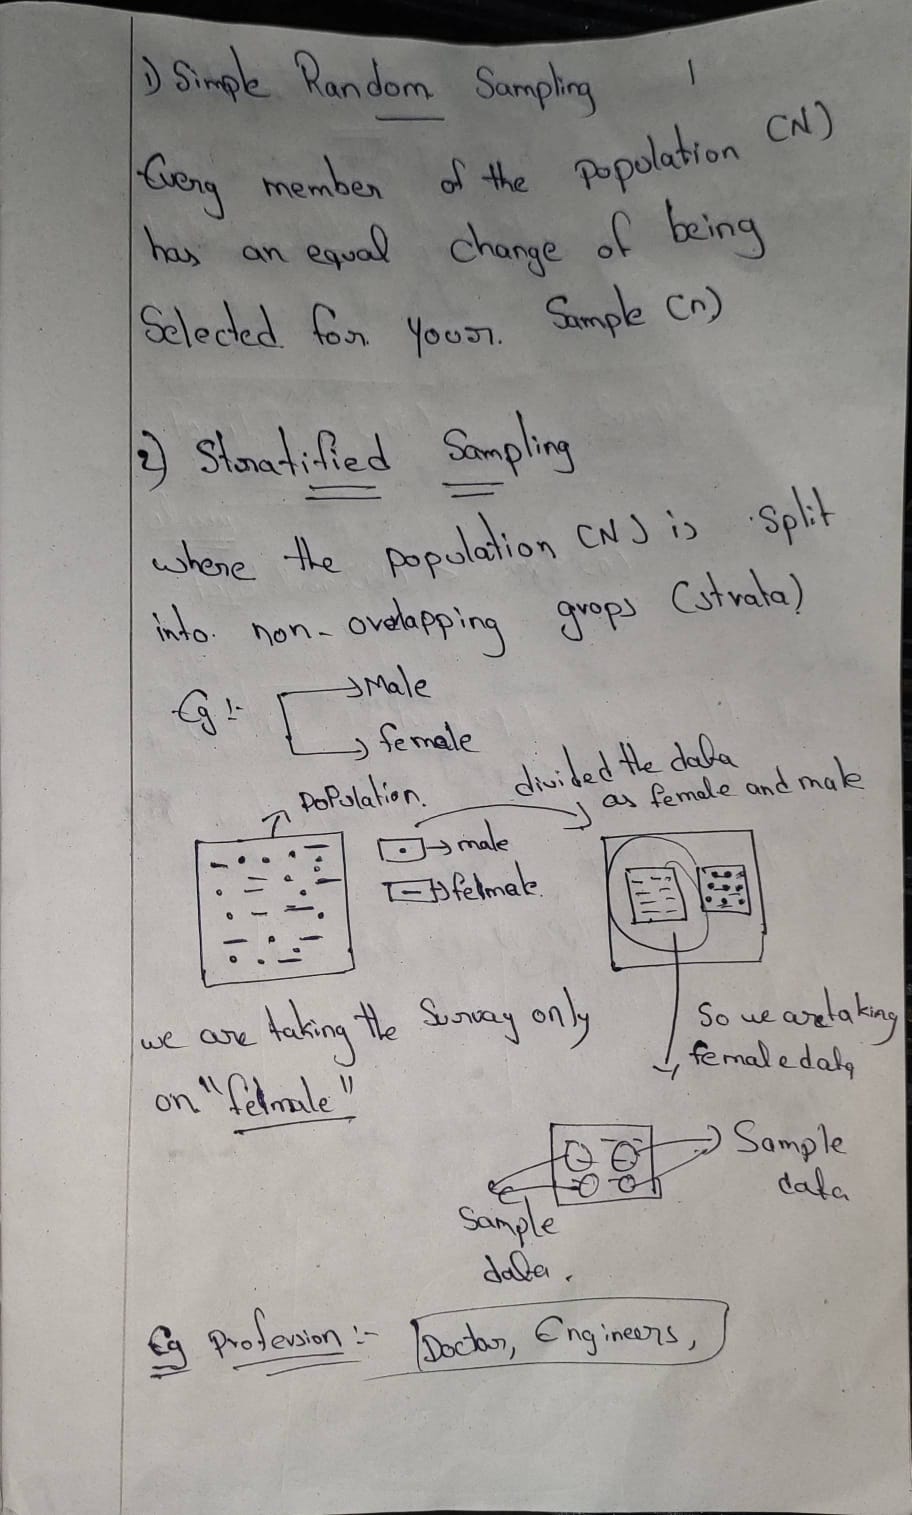 1) Simple Random Sampling 1
Every member of the Population (N)
has an equal change of being
Selected for your Sample (n)
2) Stratified Sampling
where the population (N) is split
into non-overlapping grops (strata)
Eg :- Male
female
Population.
divided the data
as female and male
male
felmale.
we are taking the Survay only
on "felmale"
So we are taking
female data
Sample
data
Sample
data.
Eg Profession :- Doctor, Engineers,